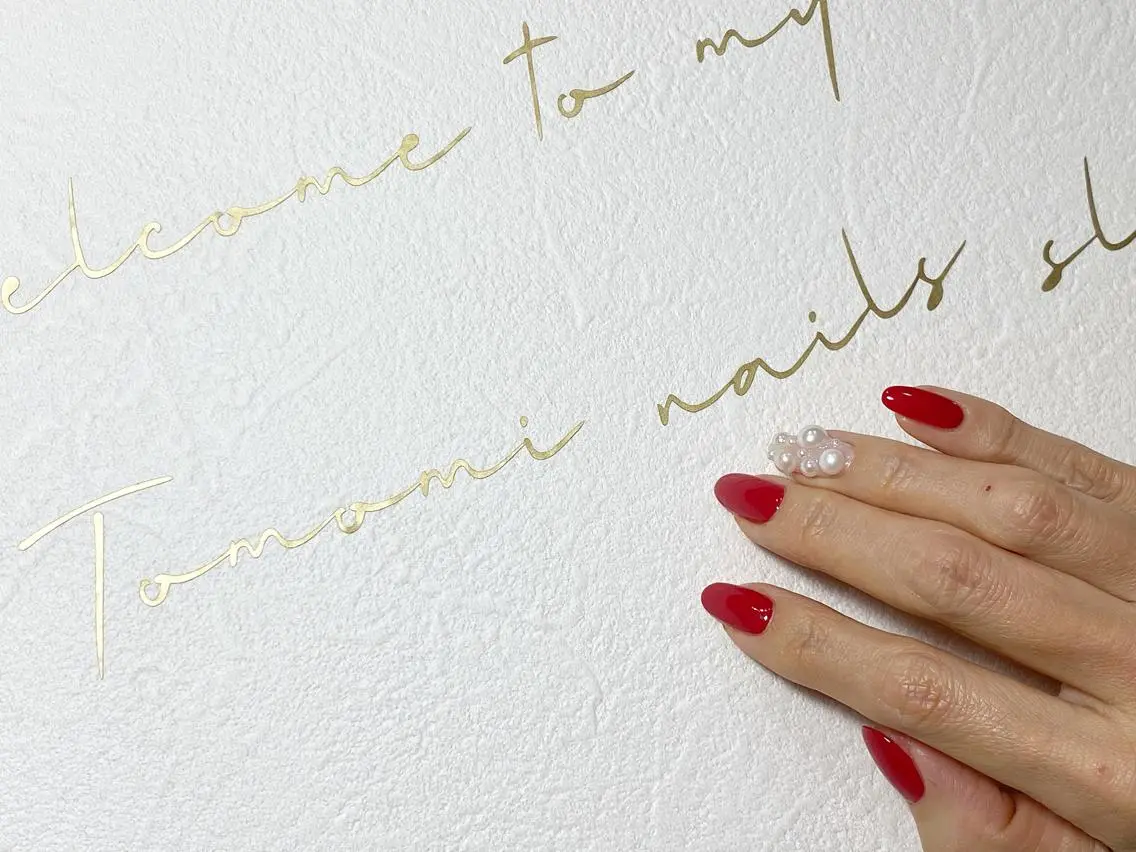 elcome to my
Tomomi nails